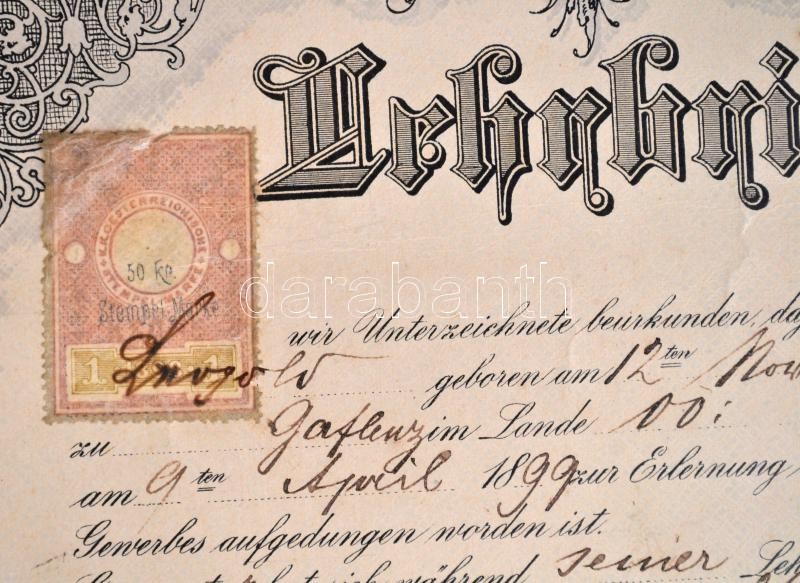 Lehrbri
K.K. OESTERREICHISCHE
50 kr.
Stempel Marke
1 1
darabanth
wir Unterzeichnete beurkunden, da
Leopold geboren am 12ten Nov
zu Gaflenz im Lande OÖ.
am 9ten April 1899 zur Erlernung
Gewerbes aufgedungen worden ist.
während seiner Leh